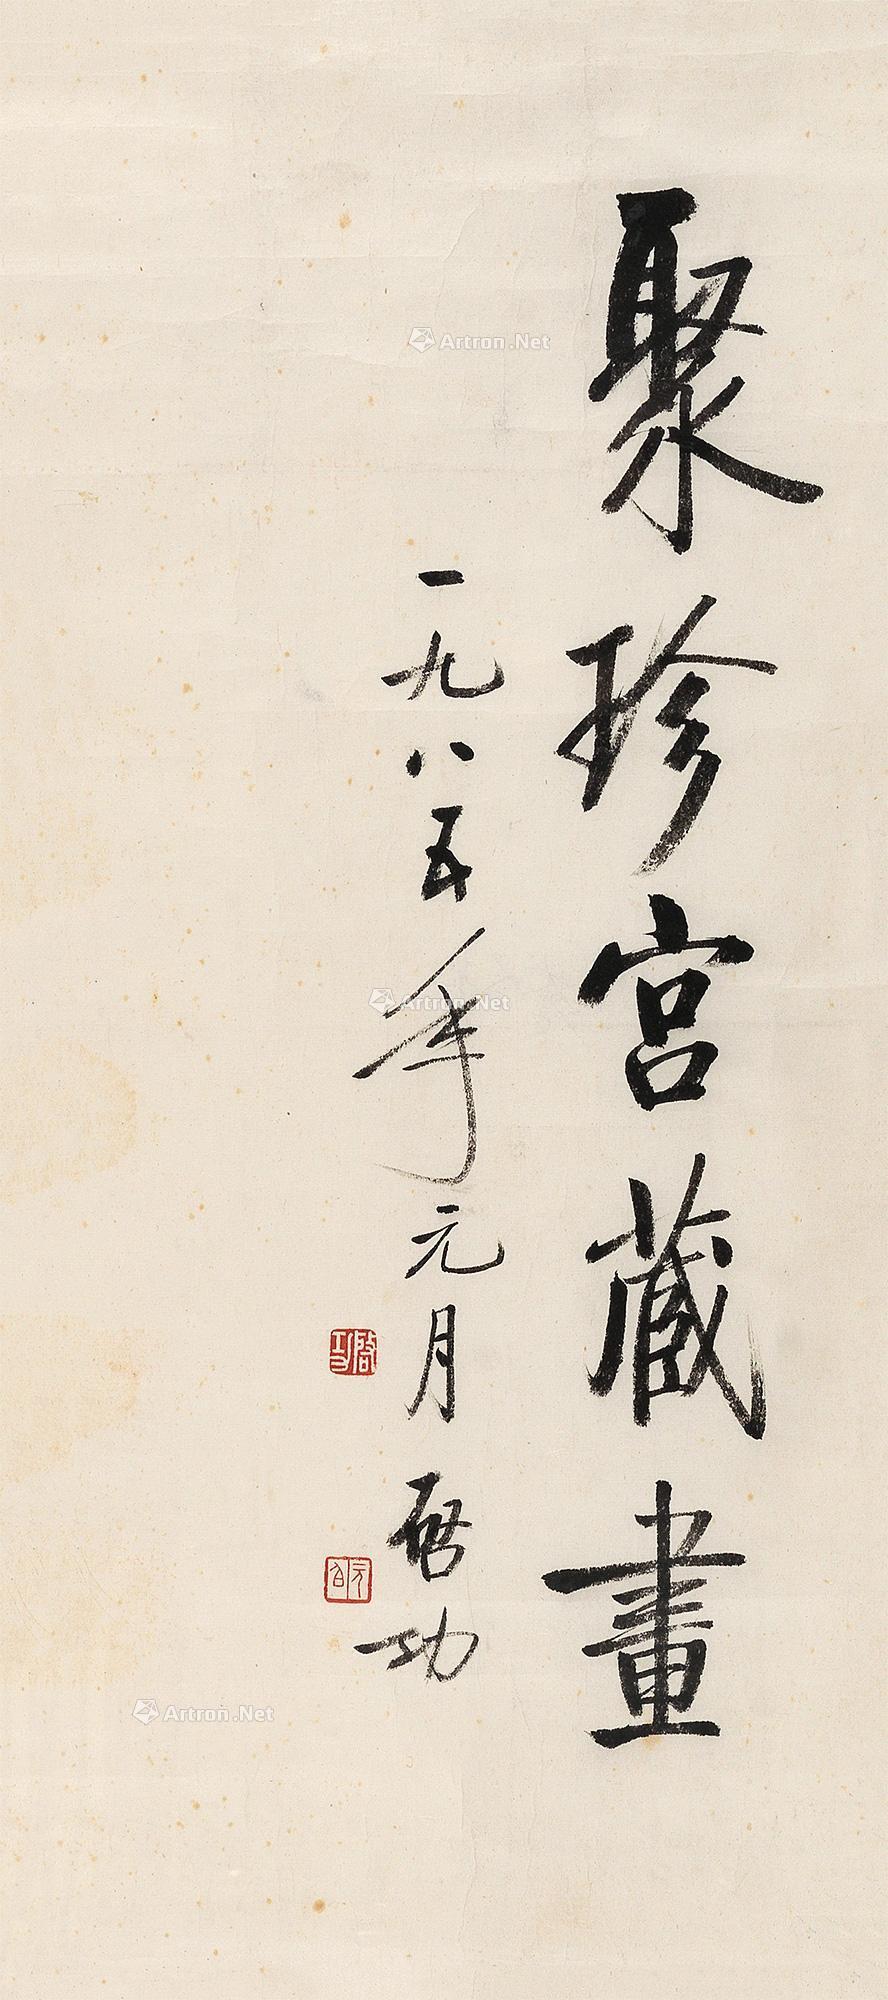 聚珍宫藏畫
一九八五年元月 启功
启功
元白
Artron.Net
Artron.Net
Artron.Net